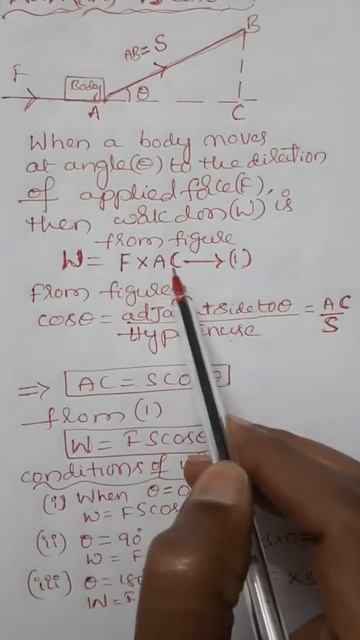 B
AB = S
F
Body
θ
A
C
When a body moves
at angle(θ) to the direction
of applied force(F),
then work don(W) is
from figure
W = F × AC → (1)
From figure
cosθ = adjacent side to θ / Hypotenuse = AC / S
⇒ AC = S cosθ
from (1)
W = FS cosθ
conditions of
(i) When θ = 0
W = FS cos
(ii) θ = 90°
W = F
(iii) θ = 180
W = F